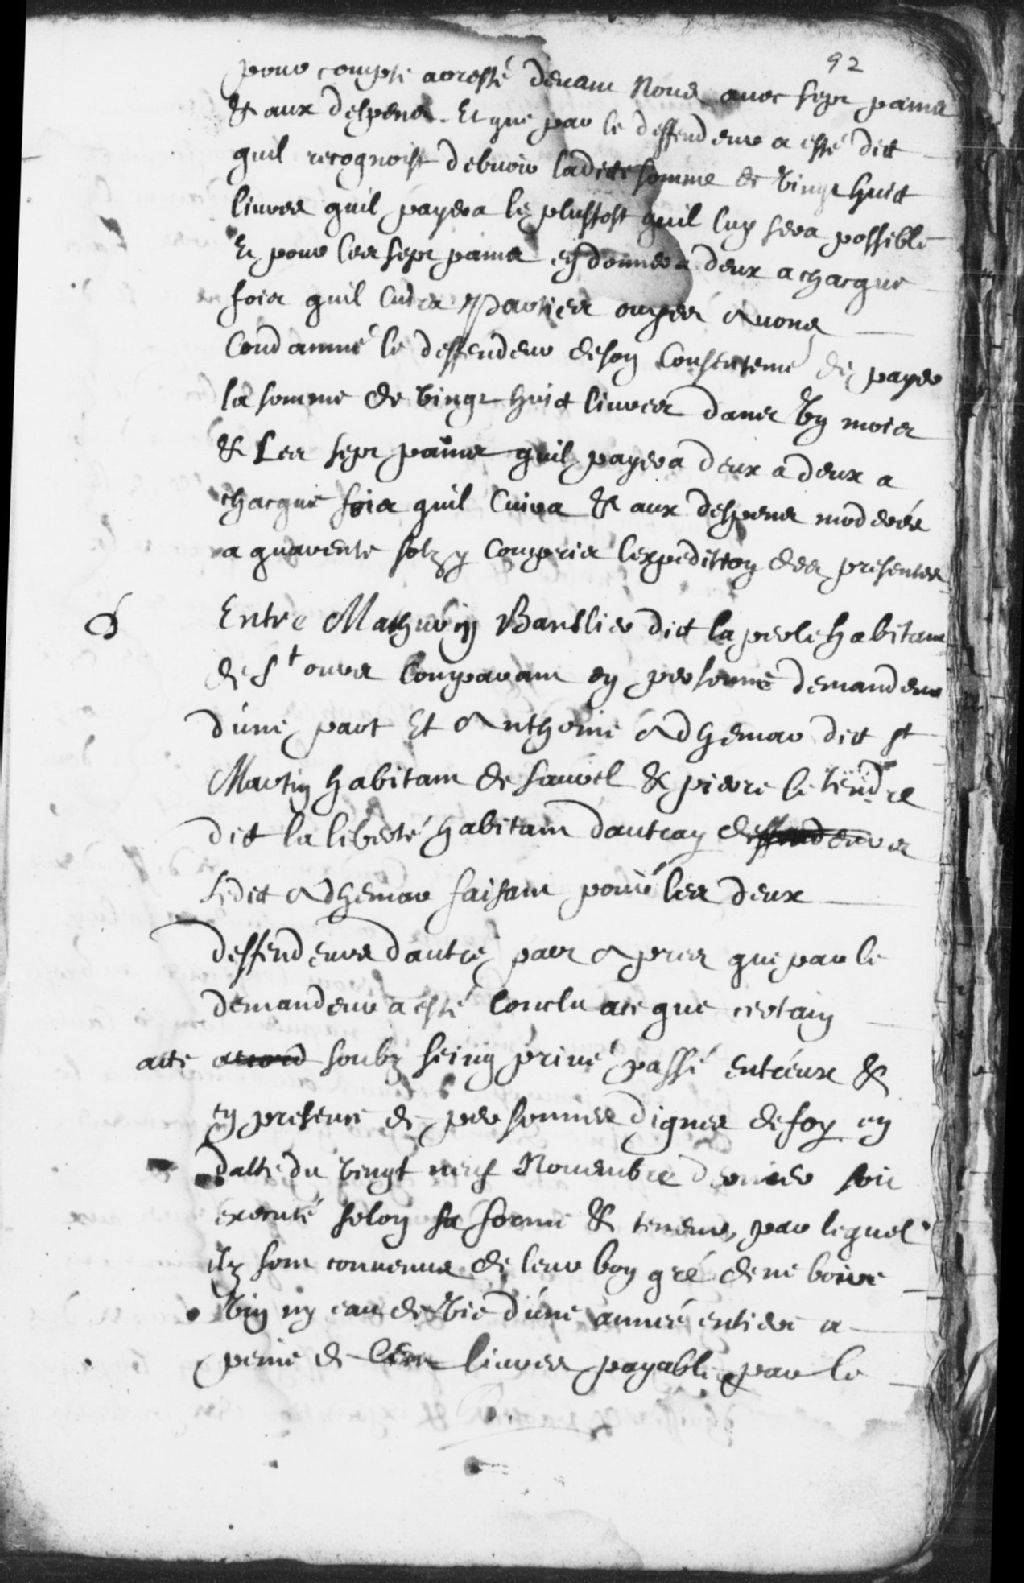 92
pour compte arresté devant Nous avec sept pains
& aux despens. Et que par le deffendeur a esté dict
quil recognoist debvoir ladite somme de vingt huict
livres quil payera le plustost quil luy sera possible
Et pour les sept pains en donner a deux a chacque
fois quil cuira Parties ouyes Avons
Condamné le deffendeur de son Consentement de payer
la somme de vingt huict livres dans un mois
& Les sept pains quil payera deux a deux a
chacque fois quil Cuira & aux despens moderés
a quarente solz y Compris lexpedition des presentes
Entre Mathurin Banslier dict la perle habitant
de St ours Comparant en personne demandeur
dune part Et Anthoine Adhemar dict St
Martin habitant de Saurel & pierre le tendre
dict la liberté habitant dautray deffendeurs
Ledict Adhemar faisant pour les deux
deffendeurs dautre part Apres que par le
demandeur a esté Conclu ace que certain
acte accord soubz seing privé passé entreux &
en presence de personnes dignes de foy en
datte du vingt neuf Novembre dernier soit
executé selon sa forme & teneur, par lequel
ilz sont convenus de leur bon gré de ne boire
vin ny eau de vie dune année entiere a
peine de Cent livres payable par le